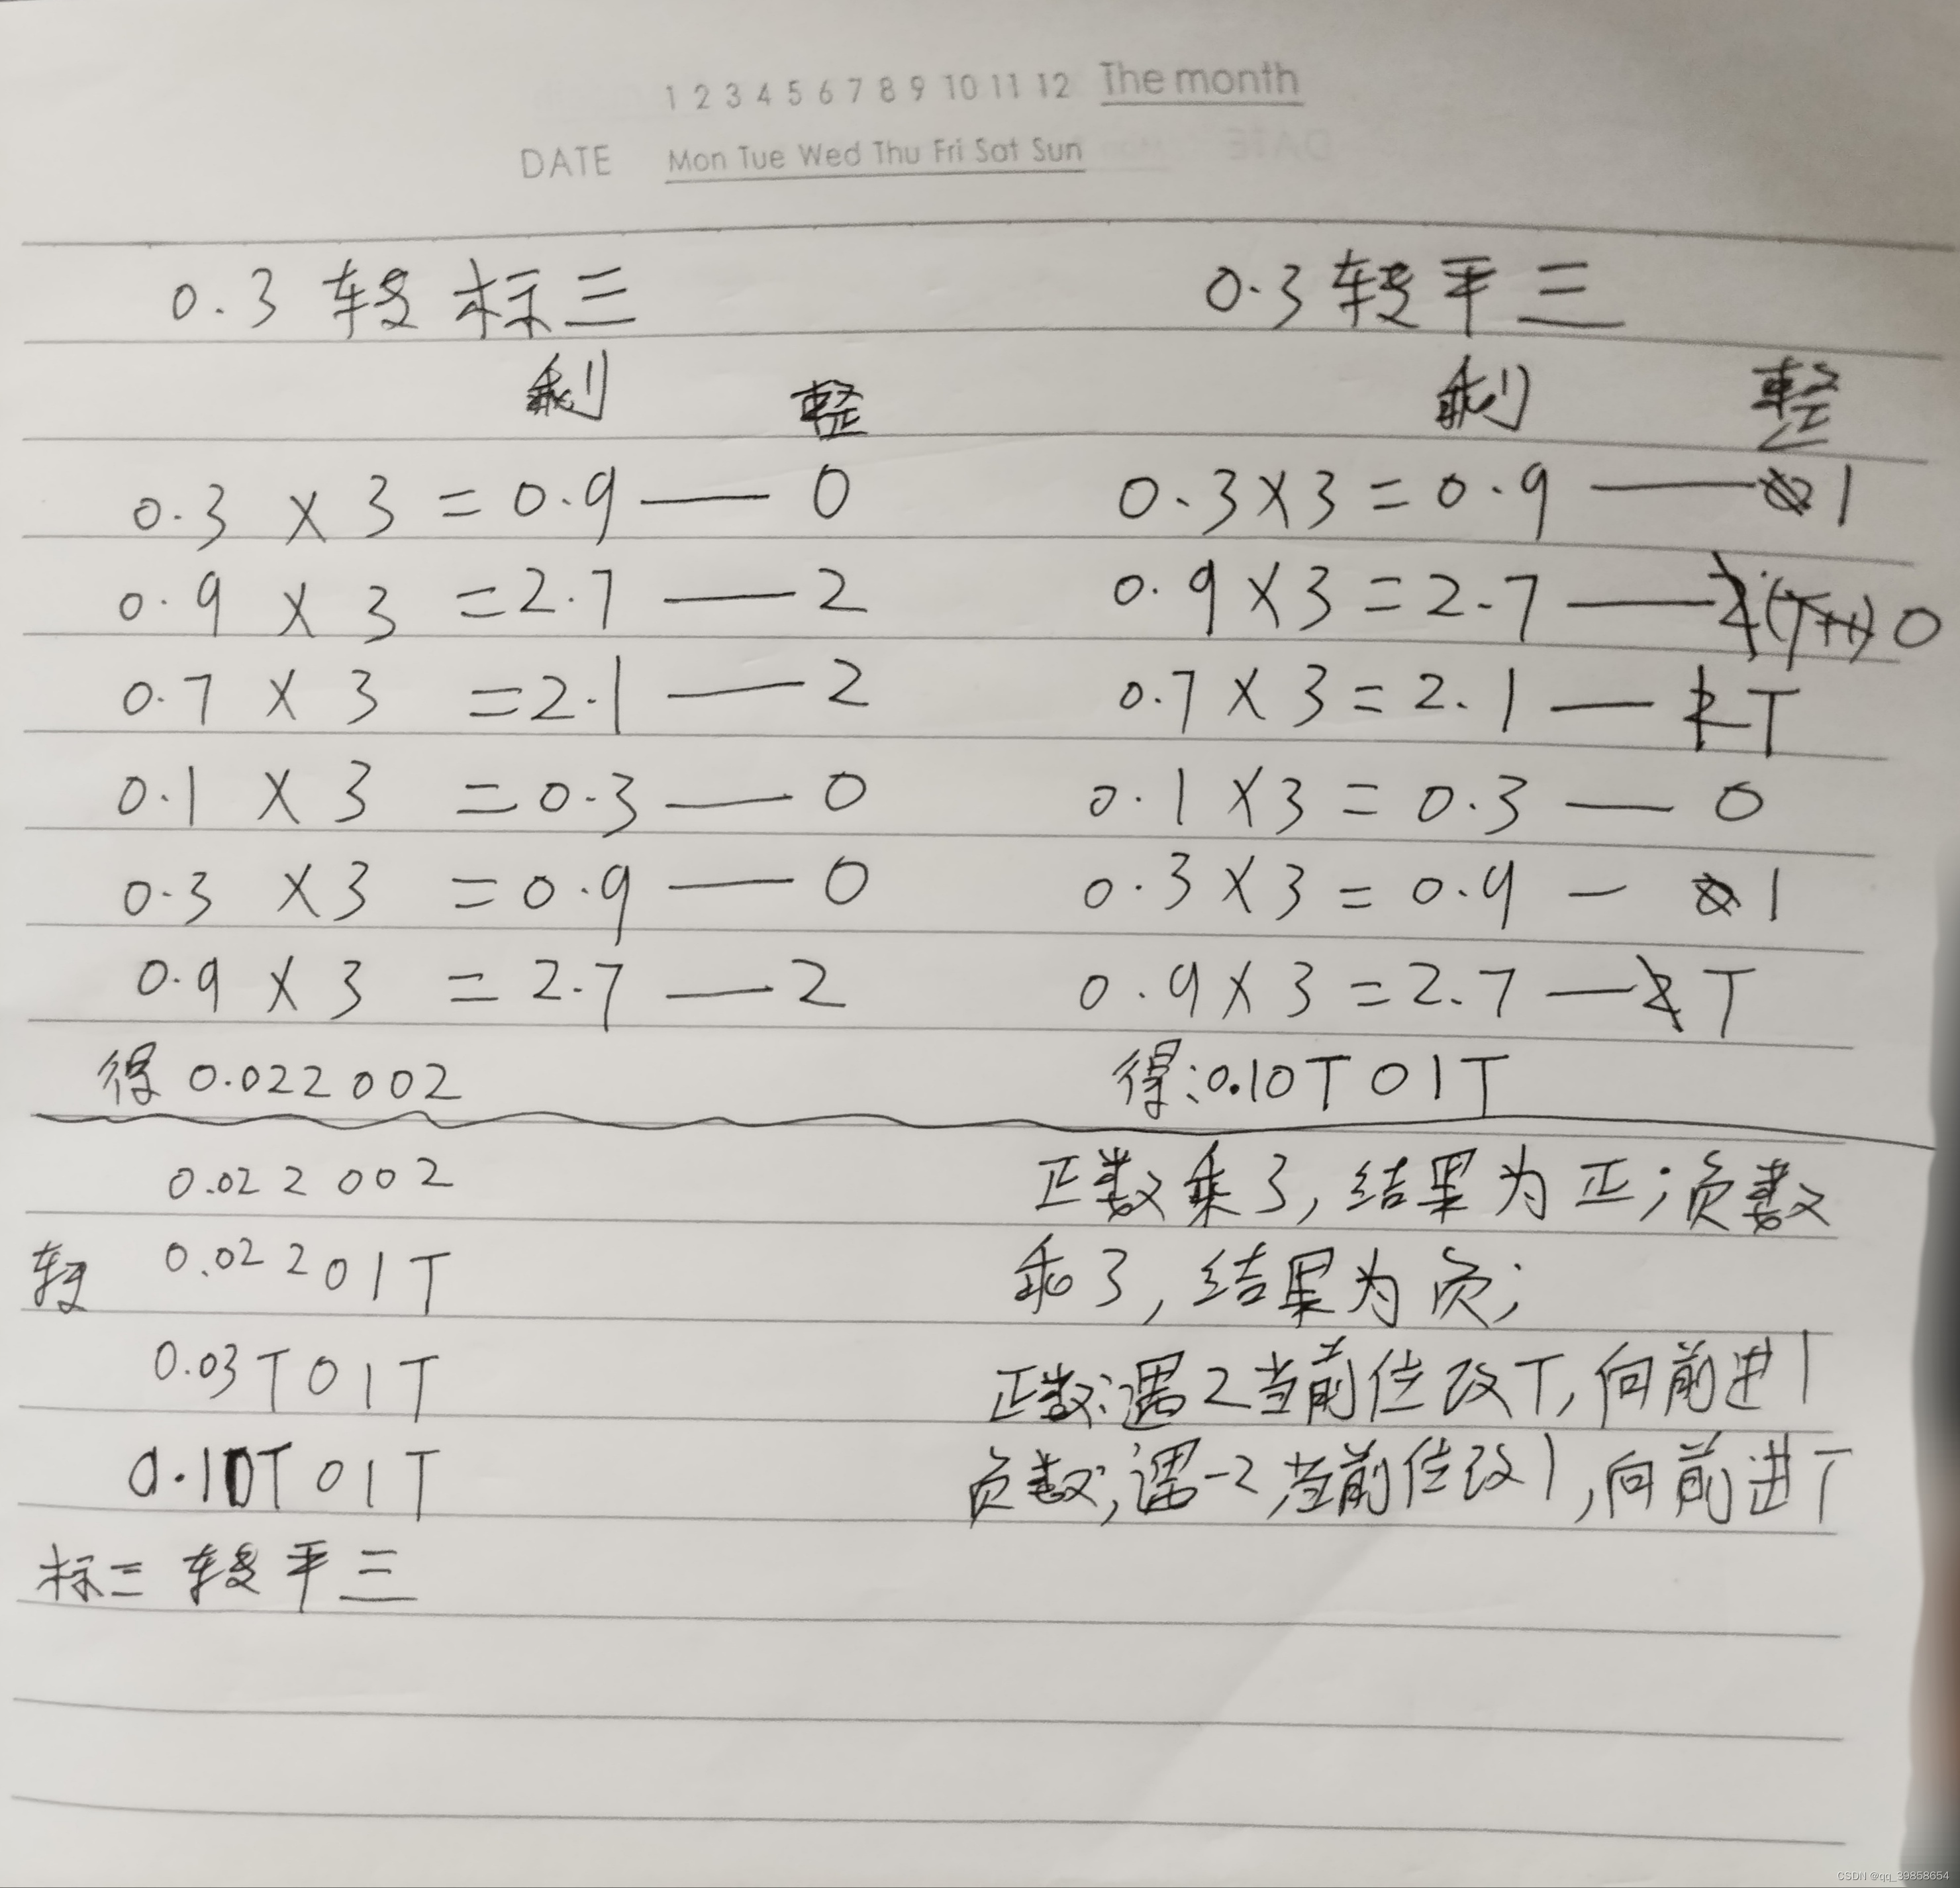 1 2 3 4 5 6 7 8 9 10 11 12 The month
DATE Mon Tue Wed Thu Fri Sat Sun
0.3 转 标三
剩 整
0.3 × 3 = 0.9 — 0
0.9 × 3 = 2.7 — 2
0.7 × 3 = 2.1 — 2
0.1 × 3 = 0.3 — 0
0.3 × 3 = 0.9 — 0
0.9 × 3 = 2.7 — 2
得 0.022002
0.3 转平三
剩 整
0.3×3=0.9 — 0 1
0.9×3=2.7 — 2 (T+1) 0
0.7×3=2.1 — 2 T
0.1×3=0.3 — 0
0.3×3=0.9 — 0 1
0.9×3=2.7 — 2 T
得:0.10T01T
0.022002
转 0.02201T
0.03T01T
0.10T01T
标三 转平三
正数乘3,结果为正;负数
乘3,结果为负;
正数:遇2当前位改T,向前进1
负数;遇-2当前位改1,向前进T
CSDN @qq_39858654